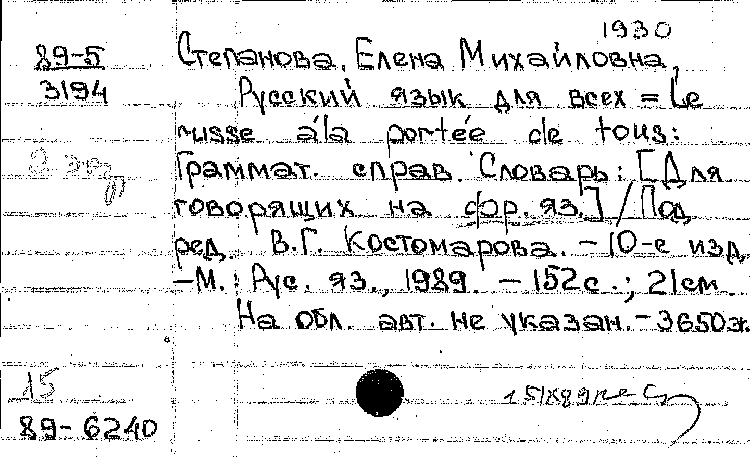 1930
89-5
3194
Степанова, Елена Михайловна.
Русский язык для всех = Le
russe à la portée de tous:
Граммат. справ. Словарь: [Для
говорящих на фр. яз.] / Под
ред. В.Г. Костомарова. - 10-е изд.
-М.: Рус. яз., 1989. - 152с.; 21см.
На обл. авт. не указан. - 3650э.
2 экз
15
89-6240